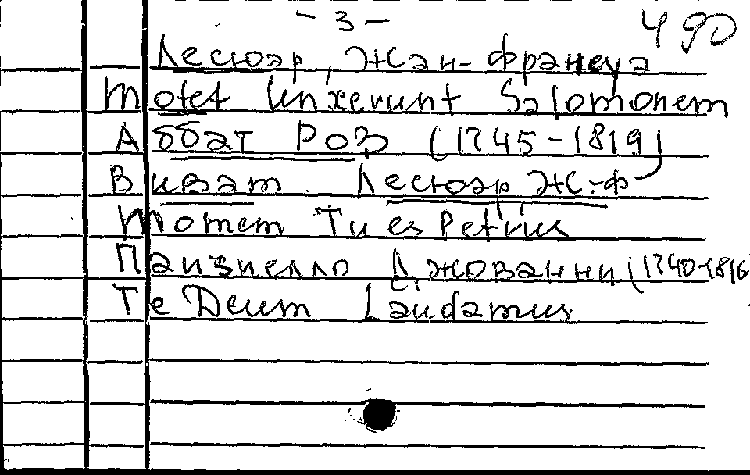 - 3 -
490
Лесюэр, Жан-Франсуа
Motet Unxerunt Salomonem
Аббат Роз (1745-1819)
Виват Лесюэр Ж-Ф
Мотет Tu es Petrus
Паизиелло Джованни (1740-1816
Te Deum Laudamus